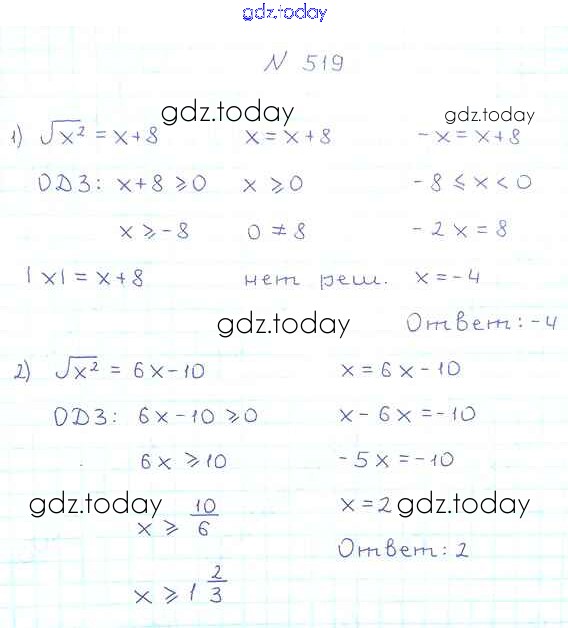 gdz.today
N 519
gdz.today
gdz.today
1) √x² = x+8
x = x+8
-x = x+8
ОДЗ: x+8 ⩾ 0
x ⩾ 0
-8 ⩽ x < 0
x ⩾ -8
0 ≠ 8
-2x = 8
|x| = x+8
нет реш.
x = -4
gdz.today
Ответ: -4
2) √x² = 6x-10
x = 6x-10
ОДЗ: 6x-10 ⩾ 0
x-6x = -10
6x ⩾ 10
-5x = -10
gdz.today
x ⩾ 10/6
x = 2
gdz.today
Ответ: 2
x ⩾ 1 2/3